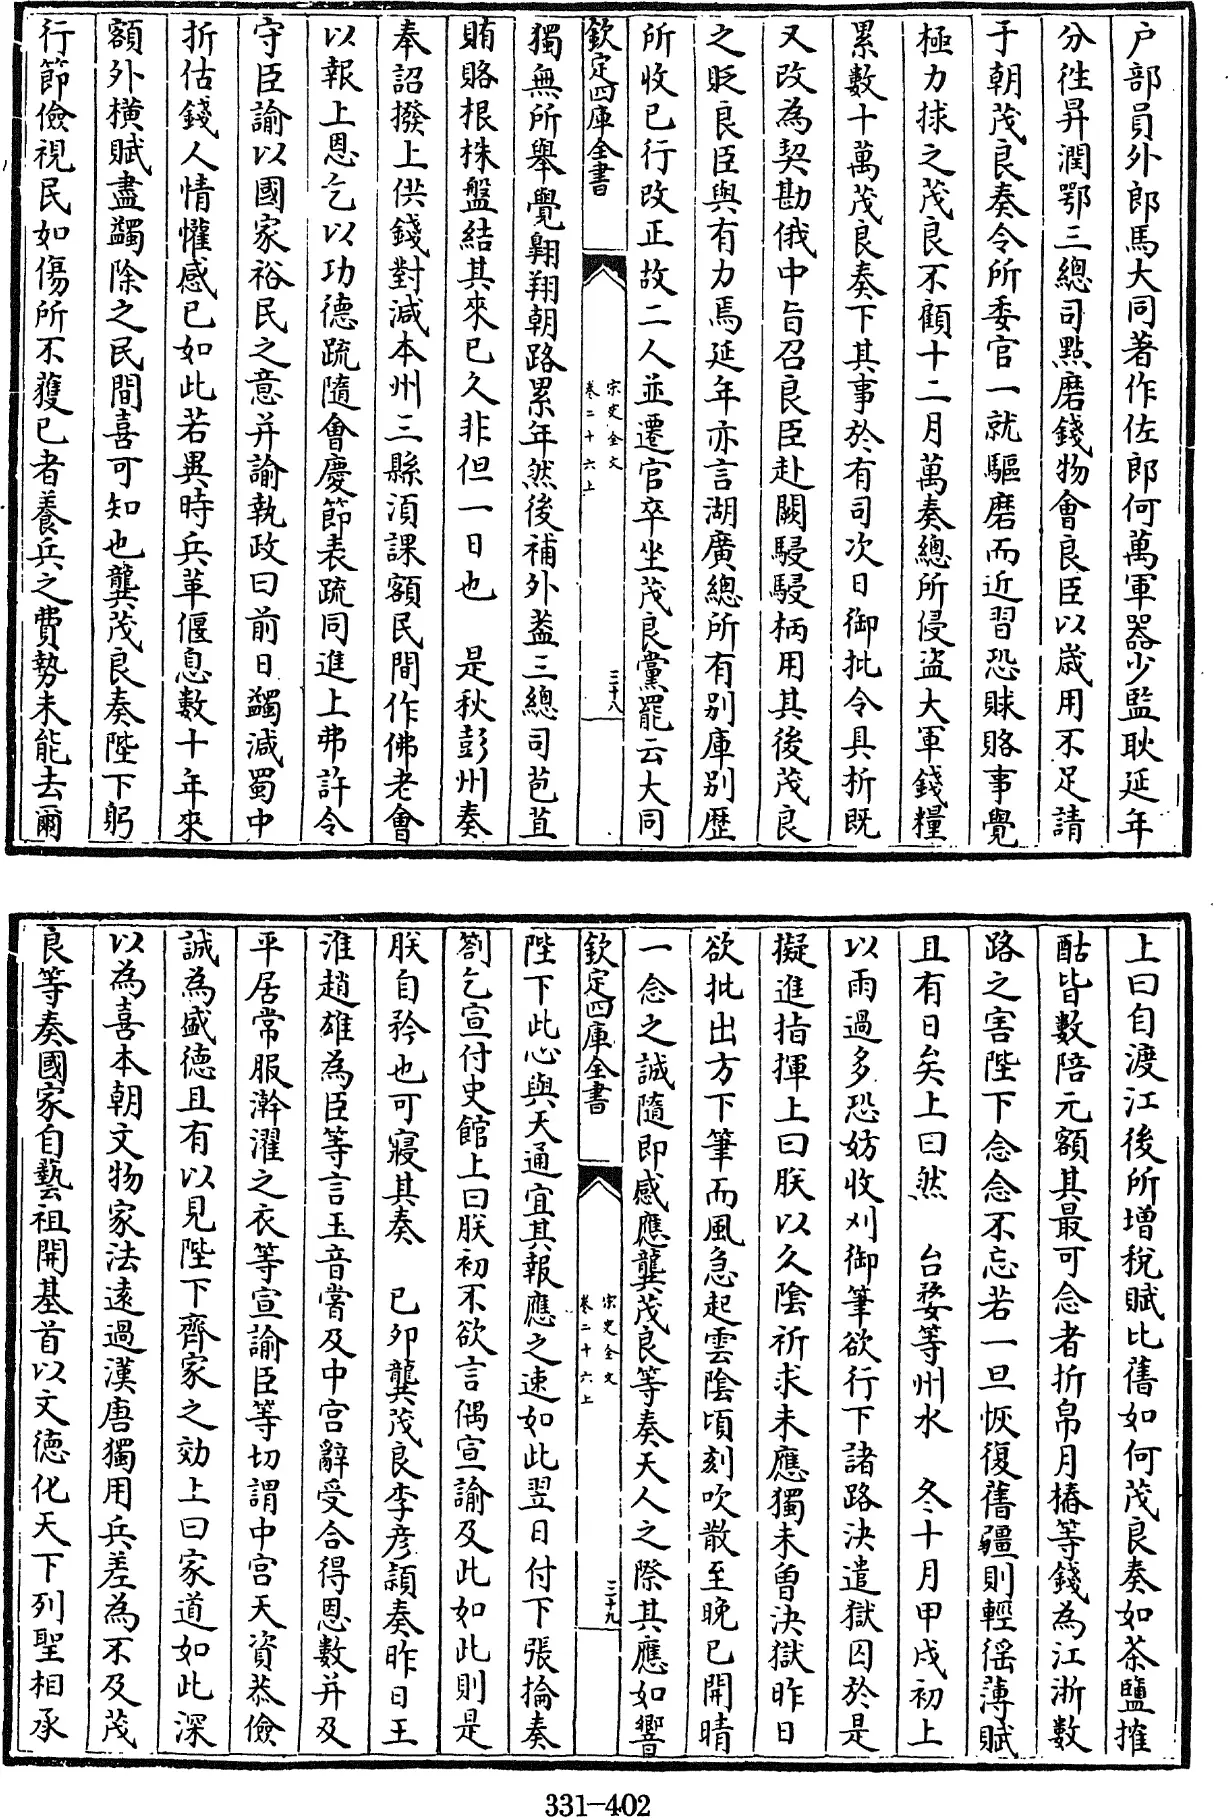 户部員外郎馬大同著作佐郎何萬軍器少監耿延年
分徃昇潤鄂三總司㸃磨錢物會良臣以歳用不足請
于朝茂良奏令所委官一就驅磨而近習恐賕賂事覺
極力捄之茂良不顧十二月萬奏總所侵盜大軍錢糧
累數十萬茂良奏下其事於有司次日御批令具折既
又改為契勘俄中旨召良臣赴闕駸駸柄用其後茂良
之貶良臣與有力焉延年亦言湖廣總所有别庫别歴
所收已行改正故二人並遷官卒坐茂良黨罷云大同
欽定四庫全書
宋史全文
卷二十六上
三十八
獨無所舉覺翺翔朝路累年然後補外葢三總司苞苴
賄賂根株盤結其來已久非但一日也 是秋彭州奏
奉詔撥上供錢對減本州三縣湏課額民間作佛老會
以報上恩乞以功德疏隨會慶節表疏同進上弗許令
守臣諭以國家裕民之意并諭執政曰前日蠲減蜀中
折估錢人情懽感已如此若異時兵革偃息數十年來
額外横賦盡蠲除之民間喜可知也龔茂良奏陛下躬
行節儉視民如傷所不獲已者養兵之費勢未能去爾
上曰自渡江後所増稅賦比舊如何茂良奏如茶鹽㩁
酤皆數陪元額其最可念者折帛月樁等錢為江浙數
路之害陛下念念不忘若一旦恢復舊疆則輕徭薄賦
且有日矣上曰然 台婺等州水 冬十月甲戌初上
以雨過多恐妨收刈御筆欲行下諸路決遣獄囚於是
擬進指揮上曰朕以久陰祈求未應獨未曽決獄昨日
欲批出方下筆而風急起雲陰頃刻吹散至晩已開晴
一念之誠隨即感應龔茂良等奏天人之際其應如響
欽定四庫全書
宋史全文
卷二十六上
三十九
陛下此心與天通宜其報應之速如此翌日付下張掄奏
劄乞宣付史館上曰朕初不欲言偶宣諭及此如此則是
朕自矜也可寢其奏 已卯龔茂良李彦穎奏昨日王
淮趙雄為臣等言玉音嘗及中宫辭受合得恩數并及
平居常服澣濯之衣等宣諭臣等切謂中宫天資恭儉
誠為盛德且有以見陛下齊家之効上曰家道如此深
以為喜本朝文物家法逺過漢唐獨用兵差為不及茂
良等奏國家自藝祖開基首以文德化天下列聖相承
331-402